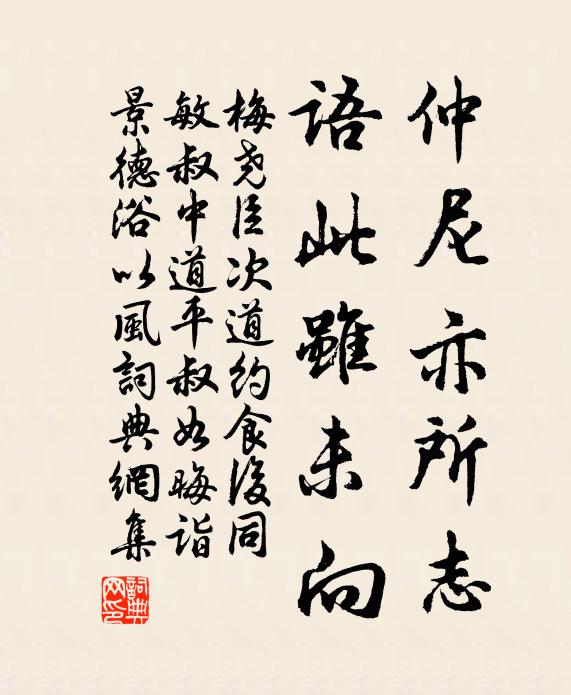 仲尼亦所志
語此雖未向
梅尧臣次道約食後同
敏叔中道平叔如晦詣
景德浴以風詞典網集
詞典網印